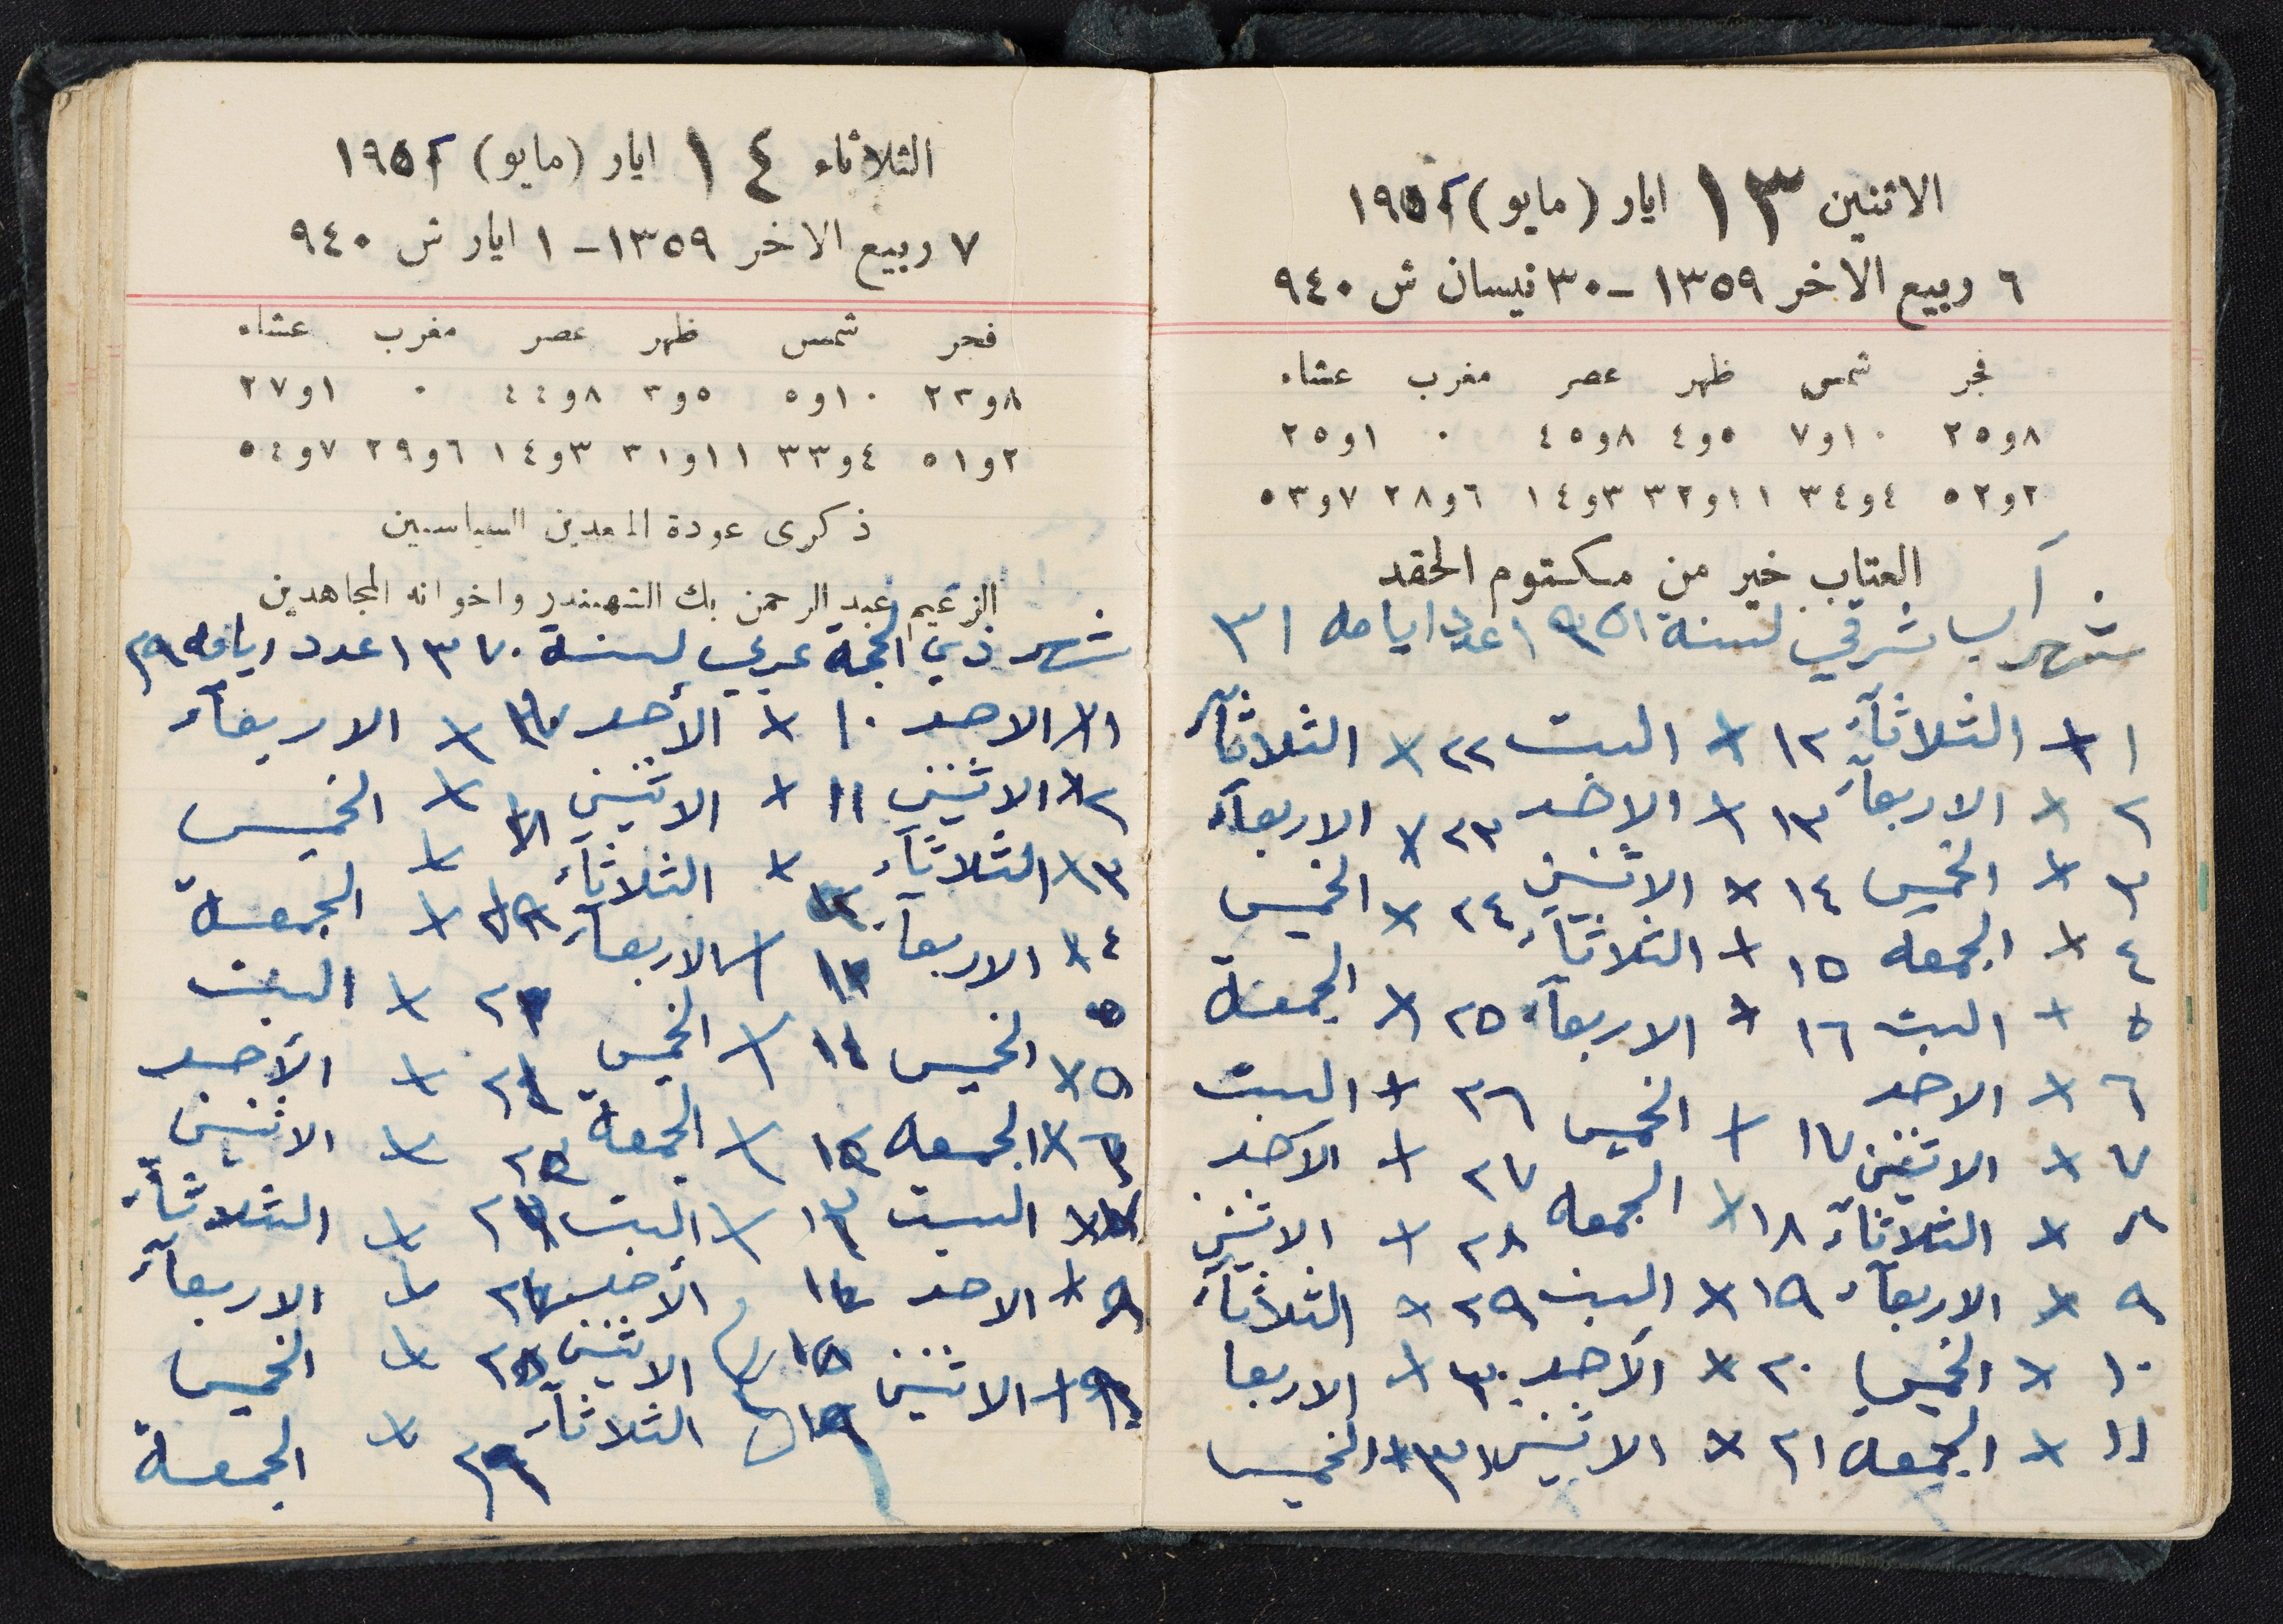 الاثنين ١٣ ايار (مايو) ١٩٥٢
٦ ربيع الاخر ١٣٥٩ – ٣٠ نيسان ش ٩٤٠
فجر شمس ظهر عصر مغرب عشاء
٨و٢٥ ١٠و٧ ٥و٤ ٨و٤٥ ٠ ١و٢٥
٢و٥٢ ٤و٣٤ ١١و٣٢ ٣و١٤ ٦و٢٨ ٧و٥٣
العتاب خير من مكتوم الحقد
شهر آب شرقي لسنة ١٩٥١ عدد ايامه ٣١
١ × الثلاثآء ١٢ × السبت ٢٢ × الثلاثآء
٢ × الاربعآء ١٣ × الاحد ٢٣ × الاربعآء
٣ × الخميس ١٤ × الاثنين ٢٤ × الخميس
٤ × الجمعه ١٥ × الثلاثآء ٢٥ × الجمعة
٥ × السبت ١٦ × الاربعآء ٢٦ × السبت
٦ × الاحد ١٧ × الخميس ٢٧ × الأحد
٧ × الاثنين ١٨ × الجمعه ٢٨ × الاثنين
٨ × الثلاثآء ١٩ × السبت ٢٩ × الثلاثآء
٩ × الاربعآء ٢٠ × الأحد ٣٠ × الاربعا
١٠ × الخميس ٢١ × الاثنين ٣١ × الخميس
١١ × الجمعه
الثلاثاء ١٤ ايار (مايو) ١٩٥٢
٧ ربيع الاخر ١٣٥٩ – ١ ايار ش ٩٤٠
فجر شمس ظهر عصر مغرب عشاء
٨و٢٣ ١٠و٥ ٥و٣ ٨و٤٤ ٠ ١و٢٧
٢و٥١ ٤و٣٣ ١١و٣١ ٣و١٤ ٦و٢٩ ٧و٥٤
ذكرى عودة المبعدين السياسيين
الزعيم عبد الرحمن بك الشهبندر واخوانه المجاهدين
شهر ذي الحجة عربي لسنة ١٣٧٠ عدد ايامه ٢٩
١ × الاحد ١٠ × الأحد × الاربعآء
٢ × الاثنين ١١ × الاثنين × الخميس
٣ × الثلاثآء × الثلاثآء × الجمعة
٤ × الاربعآء × الاربعآء × السبت
٥ × الخميس ١٤ × الخميس × الأحد
٦ × الجمعه ١٥ × الجمعة × الاثنين
× السبت × السبت × الثلاثآء
× الاحد × الأحد × الاربعآء
× الاثنين × الاثنين × الخميس
الثلاثآء × الجمعة